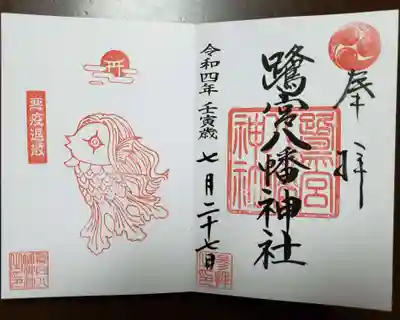 奉拝
鷺宮八幡神社
令和四年 壬寅歳 七月二十七日
鷺宮
八幡
神社
悪疫退散